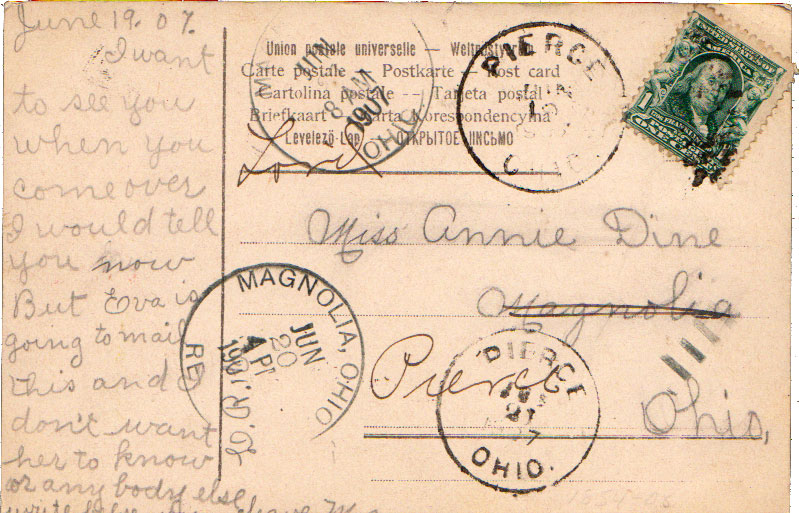 June 19. 07.
I want
to see you
when you
come over
I would tell
you now
But Eva is
going to mail
this and I
don't want
her to know
or any body else
Union postale universelle — Weltpostverein
Carte postale — Postkarte — Post card
Cartolina postale -- Tarjeta postal
Briefkaart — Karta Korespondencyjna
Levelező-Lap — ОТКРЫТОЕ ПИСЬМО
JUN
8 AM
1907
OHIO
PIERCE
OHIO
1
Miss Annie Dine
Magnolia
Pierce
Ohio,
MAGNOLIA, OHIO
JUN
20
4 PM
1907
RE
PIERCE
21
OHIO.